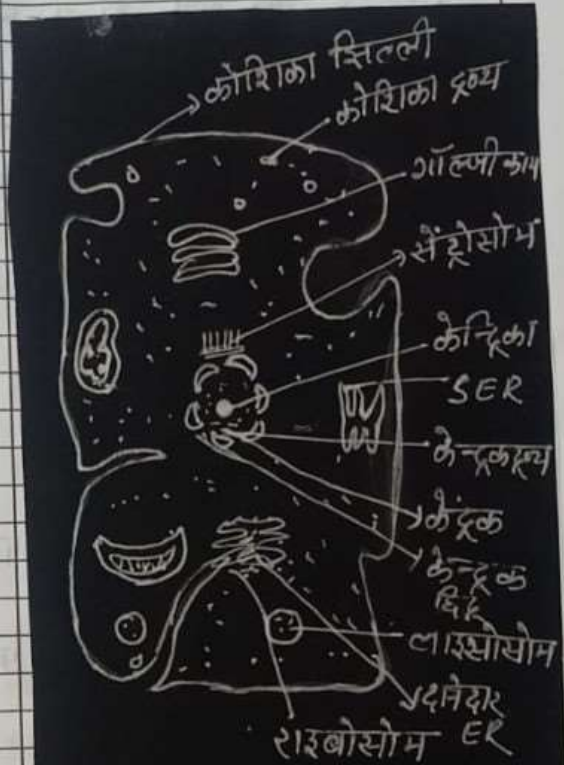 कोशिका झिल्ली
कोशिका द्रव्य
गॉल्जीकाय
सेंट्रोसोम
केन्द्रिका
SER
केन्द्रकद्रव्य
केंद्रक
केन्द्रक
छिद्र
लाइसोसोम
दानेदार
ER
राइबोसोम